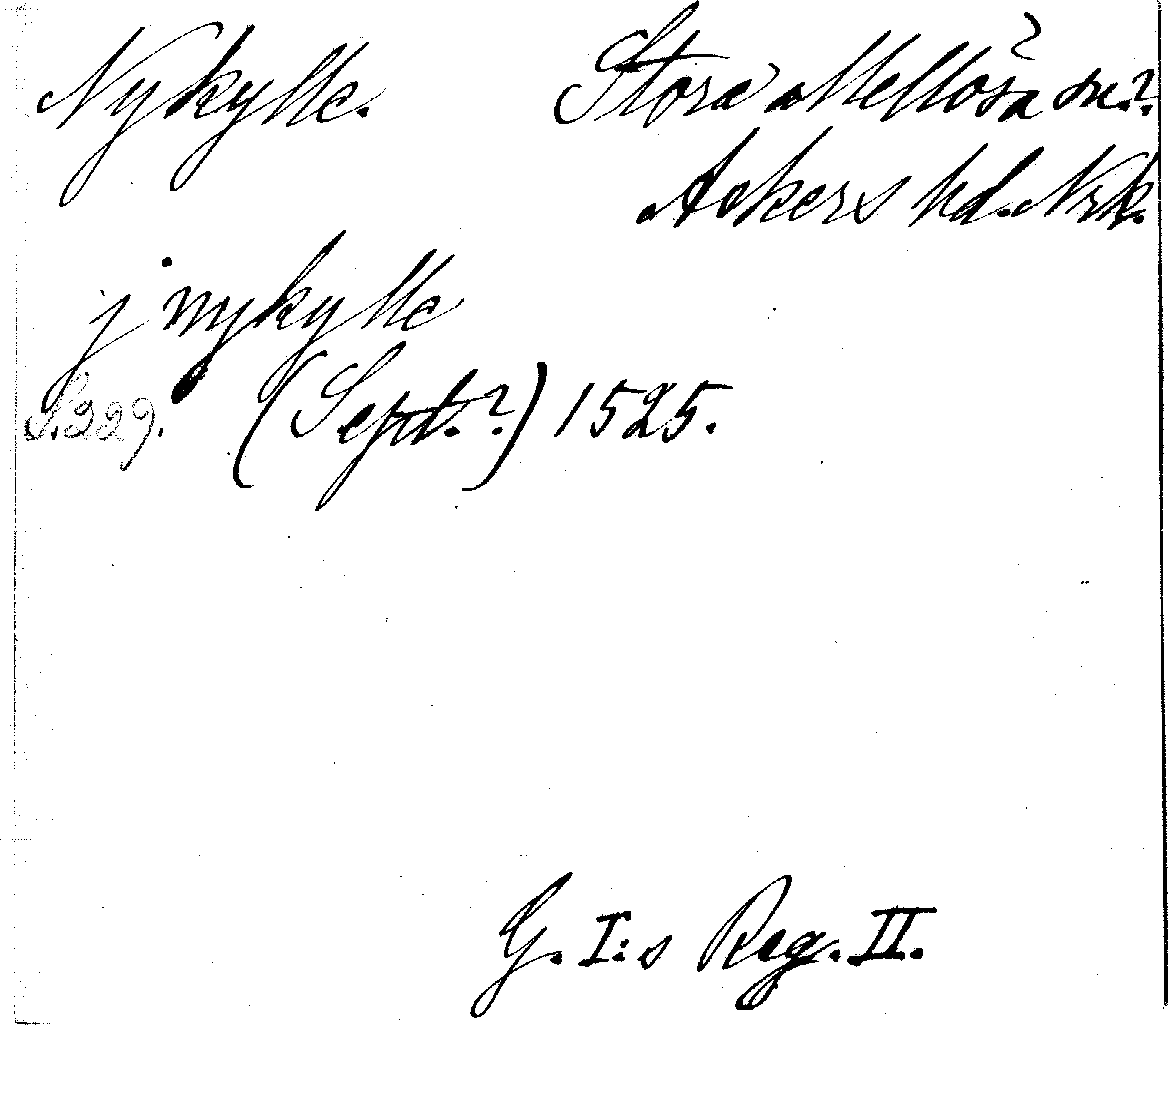 Nykylle. Stora Mellösa sn.?
Askers hd. Nrk.
j nykylle
S. 329. (Sept.?) 1525.
G. I:s Reg. II.